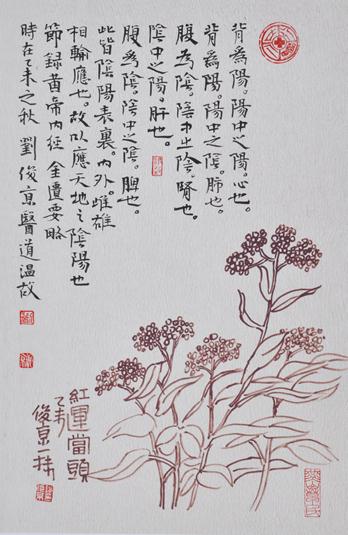 背為陽。陽中之陽。心也。
背為陽。陽中之陰。肺也。
腹為陰。陰中之陰。腎也。
陰中之陽。肝也。
腹為陰。陰中之陰。也。
此皆陰陽表裏。内外。雌雄
相輸應也。故以應天地之陰陽也
節録黄帝内经 金匱要略
時在乙未之秋 劉俊京醫道温故
紅運當頭
乙未
俊京一